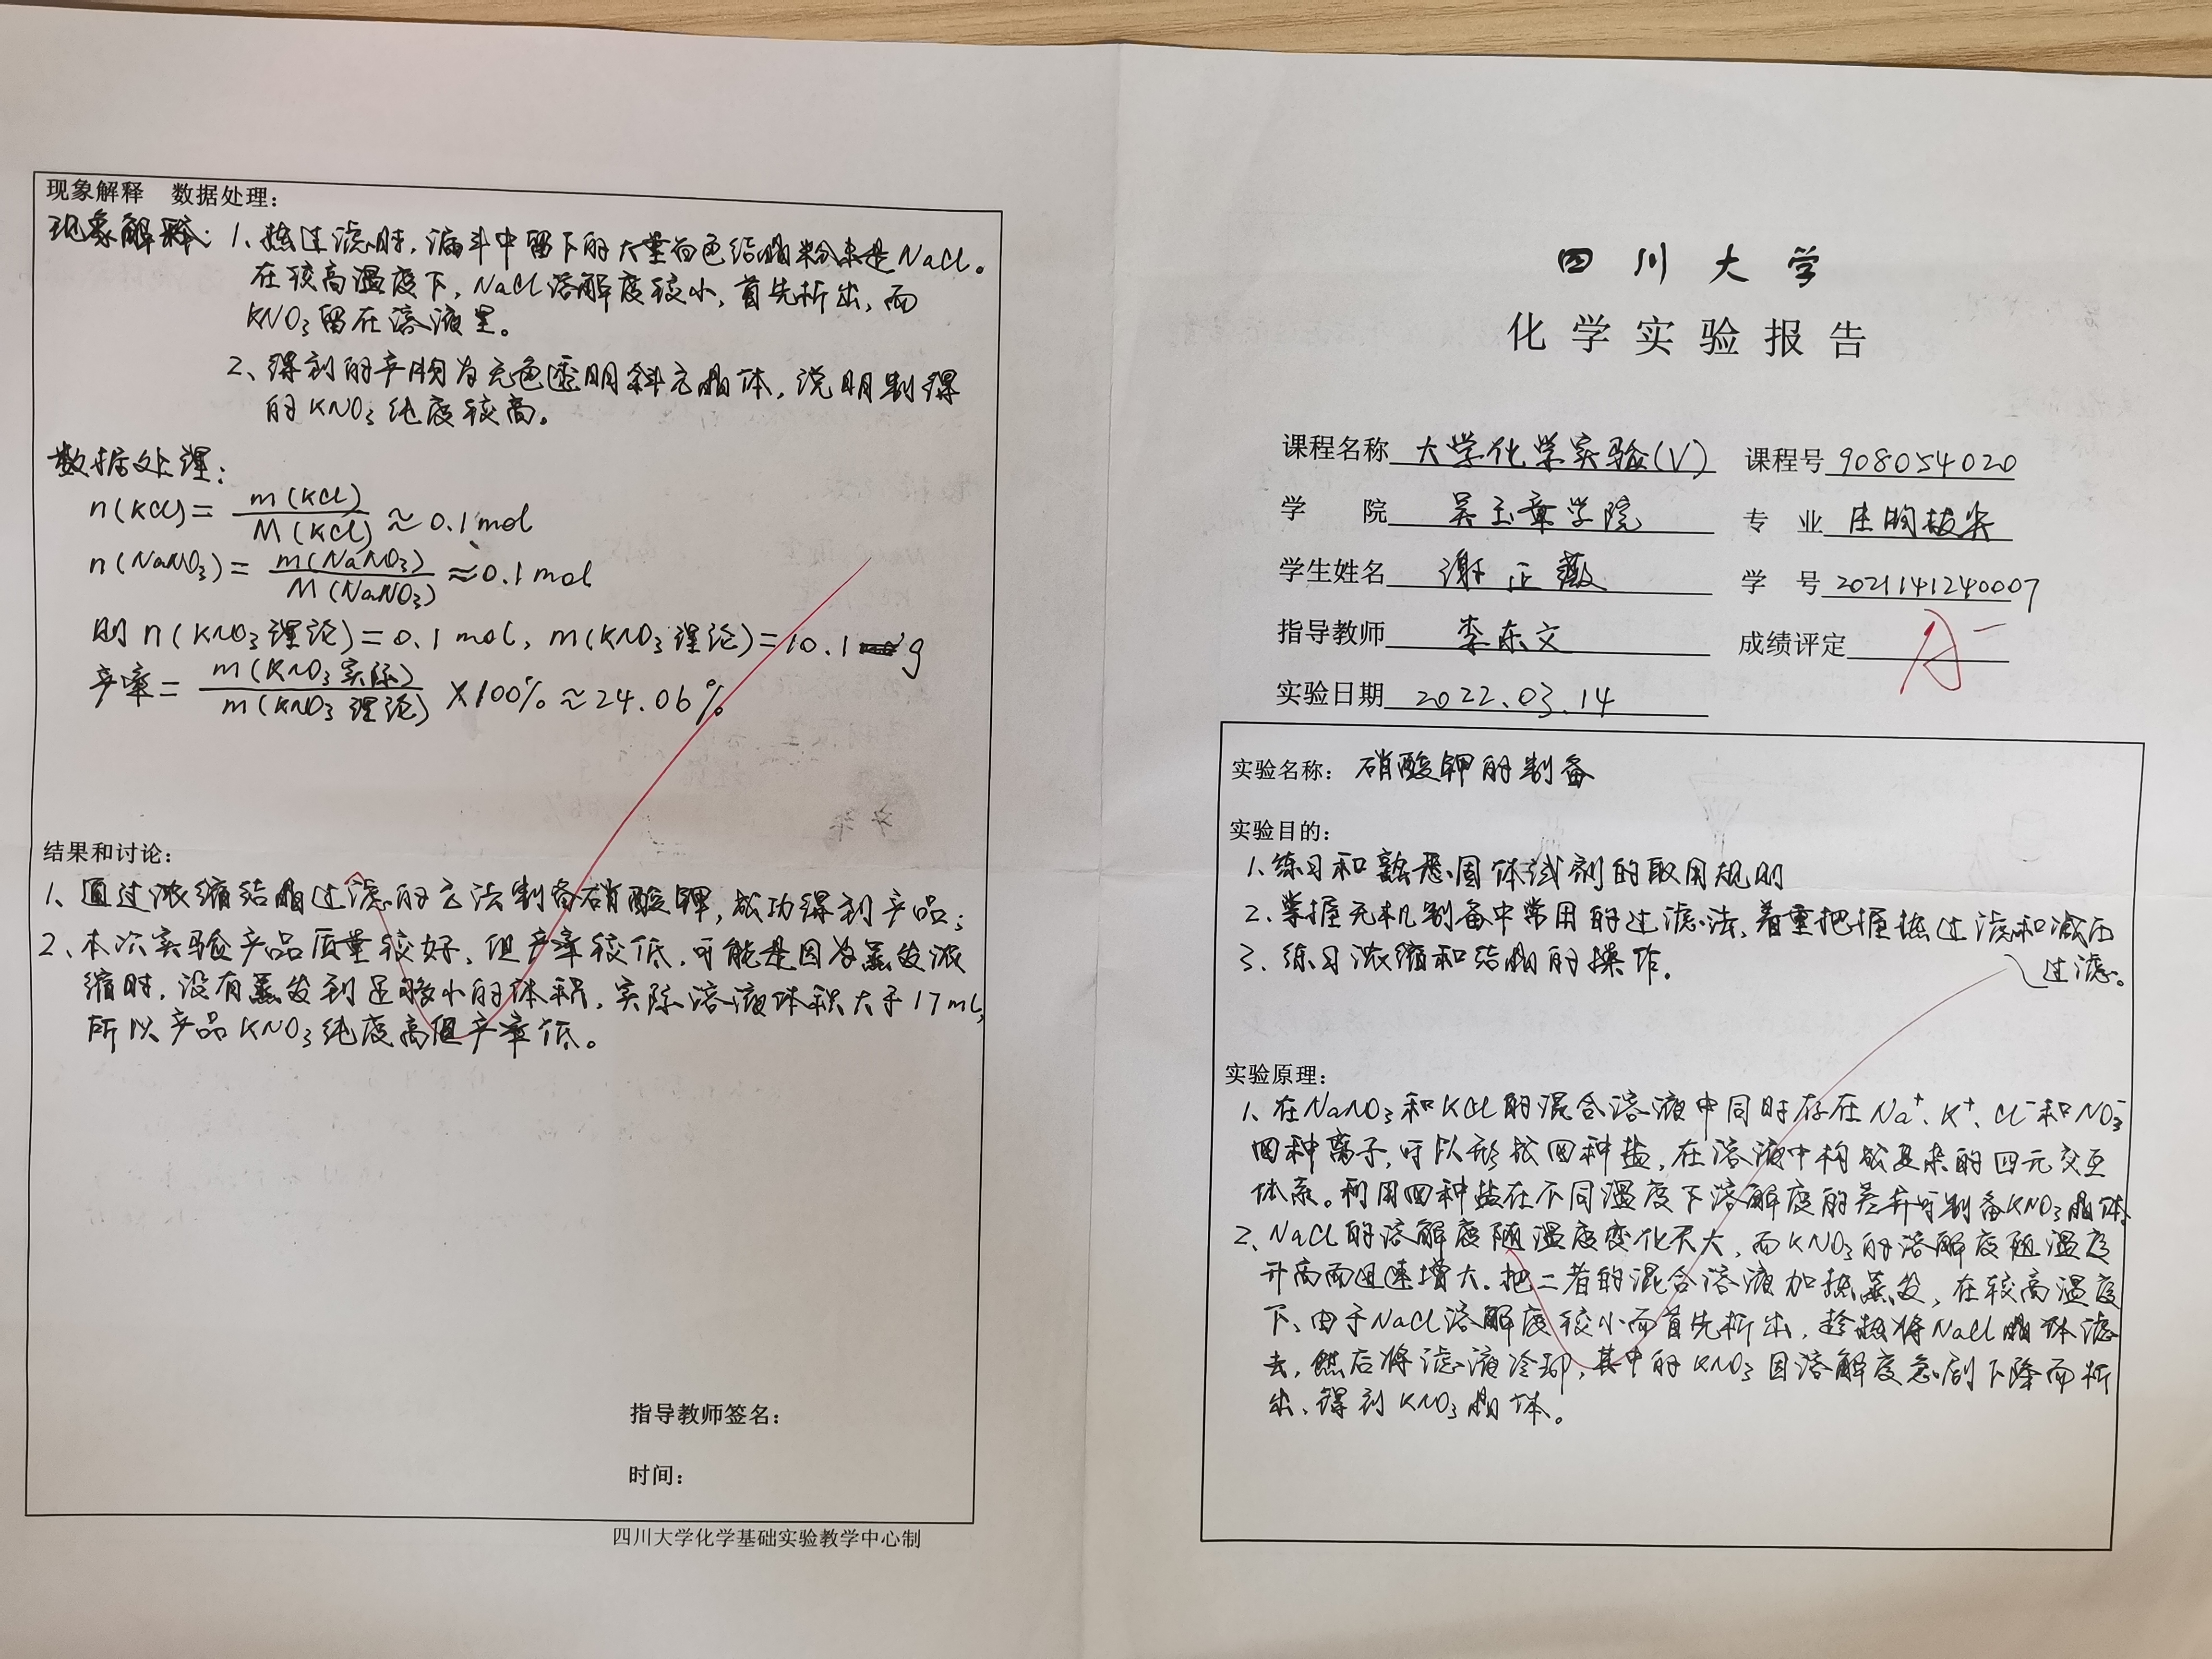 现象解释 数据处理：
现象解释：1、热过滤时，漏斗中留下的大量白色结晶粉末是NaCl。
在较高温度下，NaCl溶解度较小，首先析出，而
KNO₃留在溶液里。
2、得到的产物为无色透明斜方晶体，说明制得
的KNO₃纯度较高。
数据处理：
n(KCl)= m(KCl)/M(KCl) ≈0.1mol
n(NaNO₃)= m(NaNO₃)/M(NaNO₃) ≈0.1mol
则n(KNO₃理论)=0.1mol，m(KNO₃理论)=10.1g
产率= m(KNO₃实际)/m(KNO₃理论) ×100%≈24.06%
结果和讨论：
1、通过浓缩结晶过滤的方法制备硝酸钾，成功得到产品；
2、本次实验产品质量较好，但产率较低，可能是因为蒸发浓
缩时，没有蒸发到足够小的体积，实际溶液体积大于17mL，
所以产品KNO₃纯度高但产率低。
指导教师签名：
时间：
四川大学化学基础实验教学中心制
四川大学
化学实验报告
课程名称 大学化学实验(V) 课程号 908054020
学 院 吴玉章学院 专 业 生物拔尖
学生姓名 谢正薇 学 号 2021141240007
指导教师 李东文 成绩评定 A-
实验日期 2022.03.14
实验名称：硝酸钾的制备
实验目的：
1、练习和熟悉固体试剂的取用规则
2、掌握无机制备中常用的过滤法，着重把握热过滤和减压
过滤。
3、练习浓缩和结晶的操作。
实验原理：
1、在NaNO₃和KCl的混合溶液中同时存在Na⁺、K⁺、Cl⁻和NO₃⁻
四种离子，可以形成四种盐，在溶液中构成复杂的四元交互
体系。利用四种盐在不同温度下溶解度的差异可制备KNO₃晶体。
2、NaCl的溶解度随温度变化不大，而KNO₃的溶解度随温度
升高而迅速增大。把二者的混合溶液加热蒸发，在较高温度
下，由于NaCl溶解度较小而首先析出，趁热将NaCl晶体滤
去，然后将滤液冷却，其中的KNO₃因溶解度急剧下降而析
出，得到KNO₃晶体。